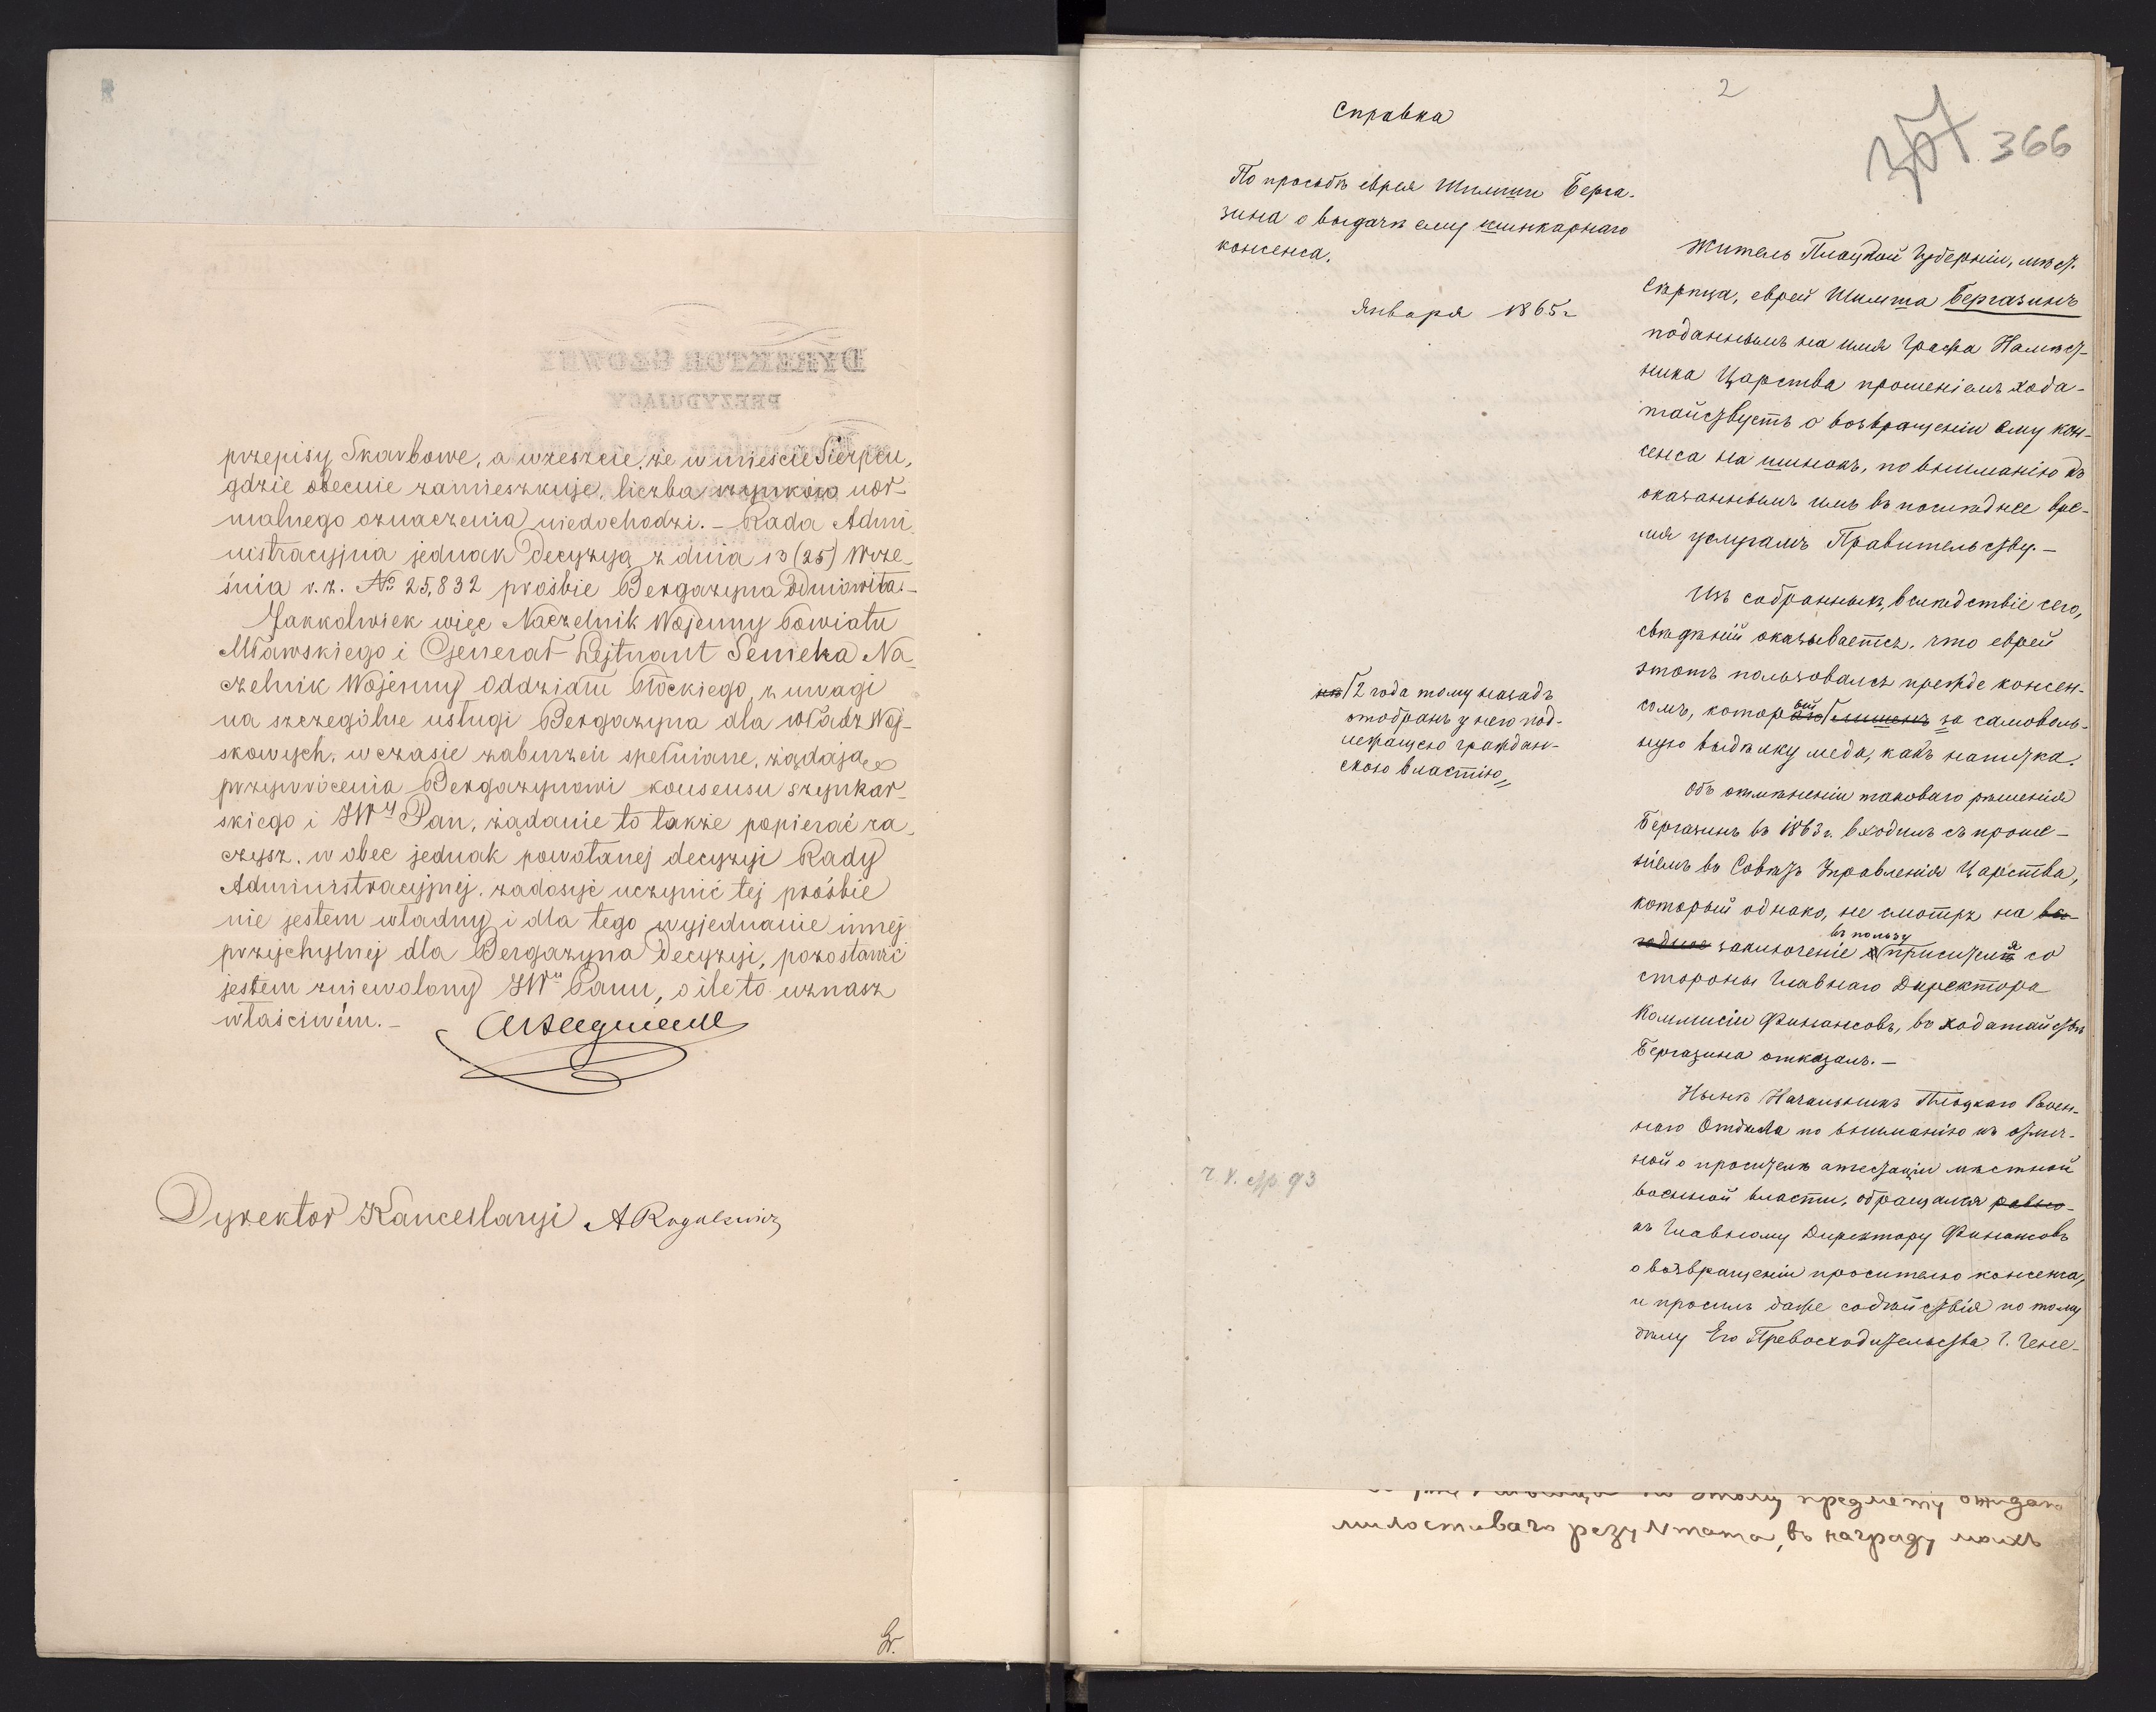 przepisy Skarbowe, a wreszcie, że w mieście Sierpcu,
gdzie obecnie zamieszkuje, liczba szynków nor-
malnego oznaczenia niedochodzi. – Rada Admi-
nistracyjna jednak Decyzyą z dnia 13 (25) Wrze-
śnia r. z. № 25,832 prośbie Bergazyna odmówiła. –
Jakkolwiek więc Naczelnik Wojenny Powiatu
Mławskiego i Generał Lejtnant Semeka Na-
czelnik Wojenny Oddziału Płockiego, z uwagi
na szczególne usługi Bergazyna dla władz Woj-
skowych, w czasie zaburzeń spełniane, żądają
przywrócenia Bergazynowi konsensu szynkar-
skiego i JWy Pan, żądanie to także popierać ra-
czysz, w obec jednak powołanej decyzyi Rady
Administracyjnej, zadosyć uczynić tej prośbie
nie jestem władny i dla tego wyjednanie innej
przychylnej dla Bergazyna Decyzyi, pozostawić
jestem zniewolony JWu Panu, o ile to uznasz
właściwém. –
Dyrektor Kancellaryi A Rogalewicz
Gr.
2
366
Справка
По просьбѣ еврея Шлиши Берга-
зина о выдачѣ ему шинкарнаго
консенса.
Января 1865 г
Житель Плоцкой Губерніи, мѣст.
Серпца, еврей Шимша Бергазинъ
поданнымъ на имя Графа Намѣст-
ника Царства прошеніемъ хода-
тайствуетъ о возвращеніи ему кон-
сенса на шинокъ, по вниманію къ
оказаннымъ имъ въ послѣднее вре-
мя услугамъ Правительству. –
Изъ собранныхъ, вслѣдствіе сего,
свѣдѣній оказывается, что еврей
этотъ пользовался прежде консен-
сомъ, который лишенъ за самоволь-
ную выдѣлку меда, какъ напитка.
2 года тому назадъ
отобранъ у него под-
лежащею граждан-
скою властію
Объ отмѣненіи таковаго рѣшенія
Бергазинъ въ 1863 г. входилъ съ проше-
ніемъ въ Совѣтъ Управленія Царства,
который однако, не смотря на вы-
въ пользу
годное заключеніе просителя со
стороны Главнаго Директора
Коммисіи Финансовъ, въ ходатайствѣ
Бергазина отказалъ. –
Нынѣ Начальникъ Плоцкаго Воен-
наго Отдѣла по вниманію къ отлич-
ной о просителѣ атестаціи мѣстной
военной власти, обращался равно-
къ Главному Директору Финансовъ
о возвращеніи просителю консенса,
и просилъ даже содѣйствія по тому
дѣлу Его Превосходительства Г. Гене-
ч. V. стр. 93
этому предмету ожидаю
милостиваго резултата, въ награду моихъ